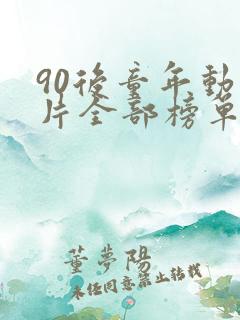 90後童年動
片全部榜單
董夢陽
未经同意禁止转载